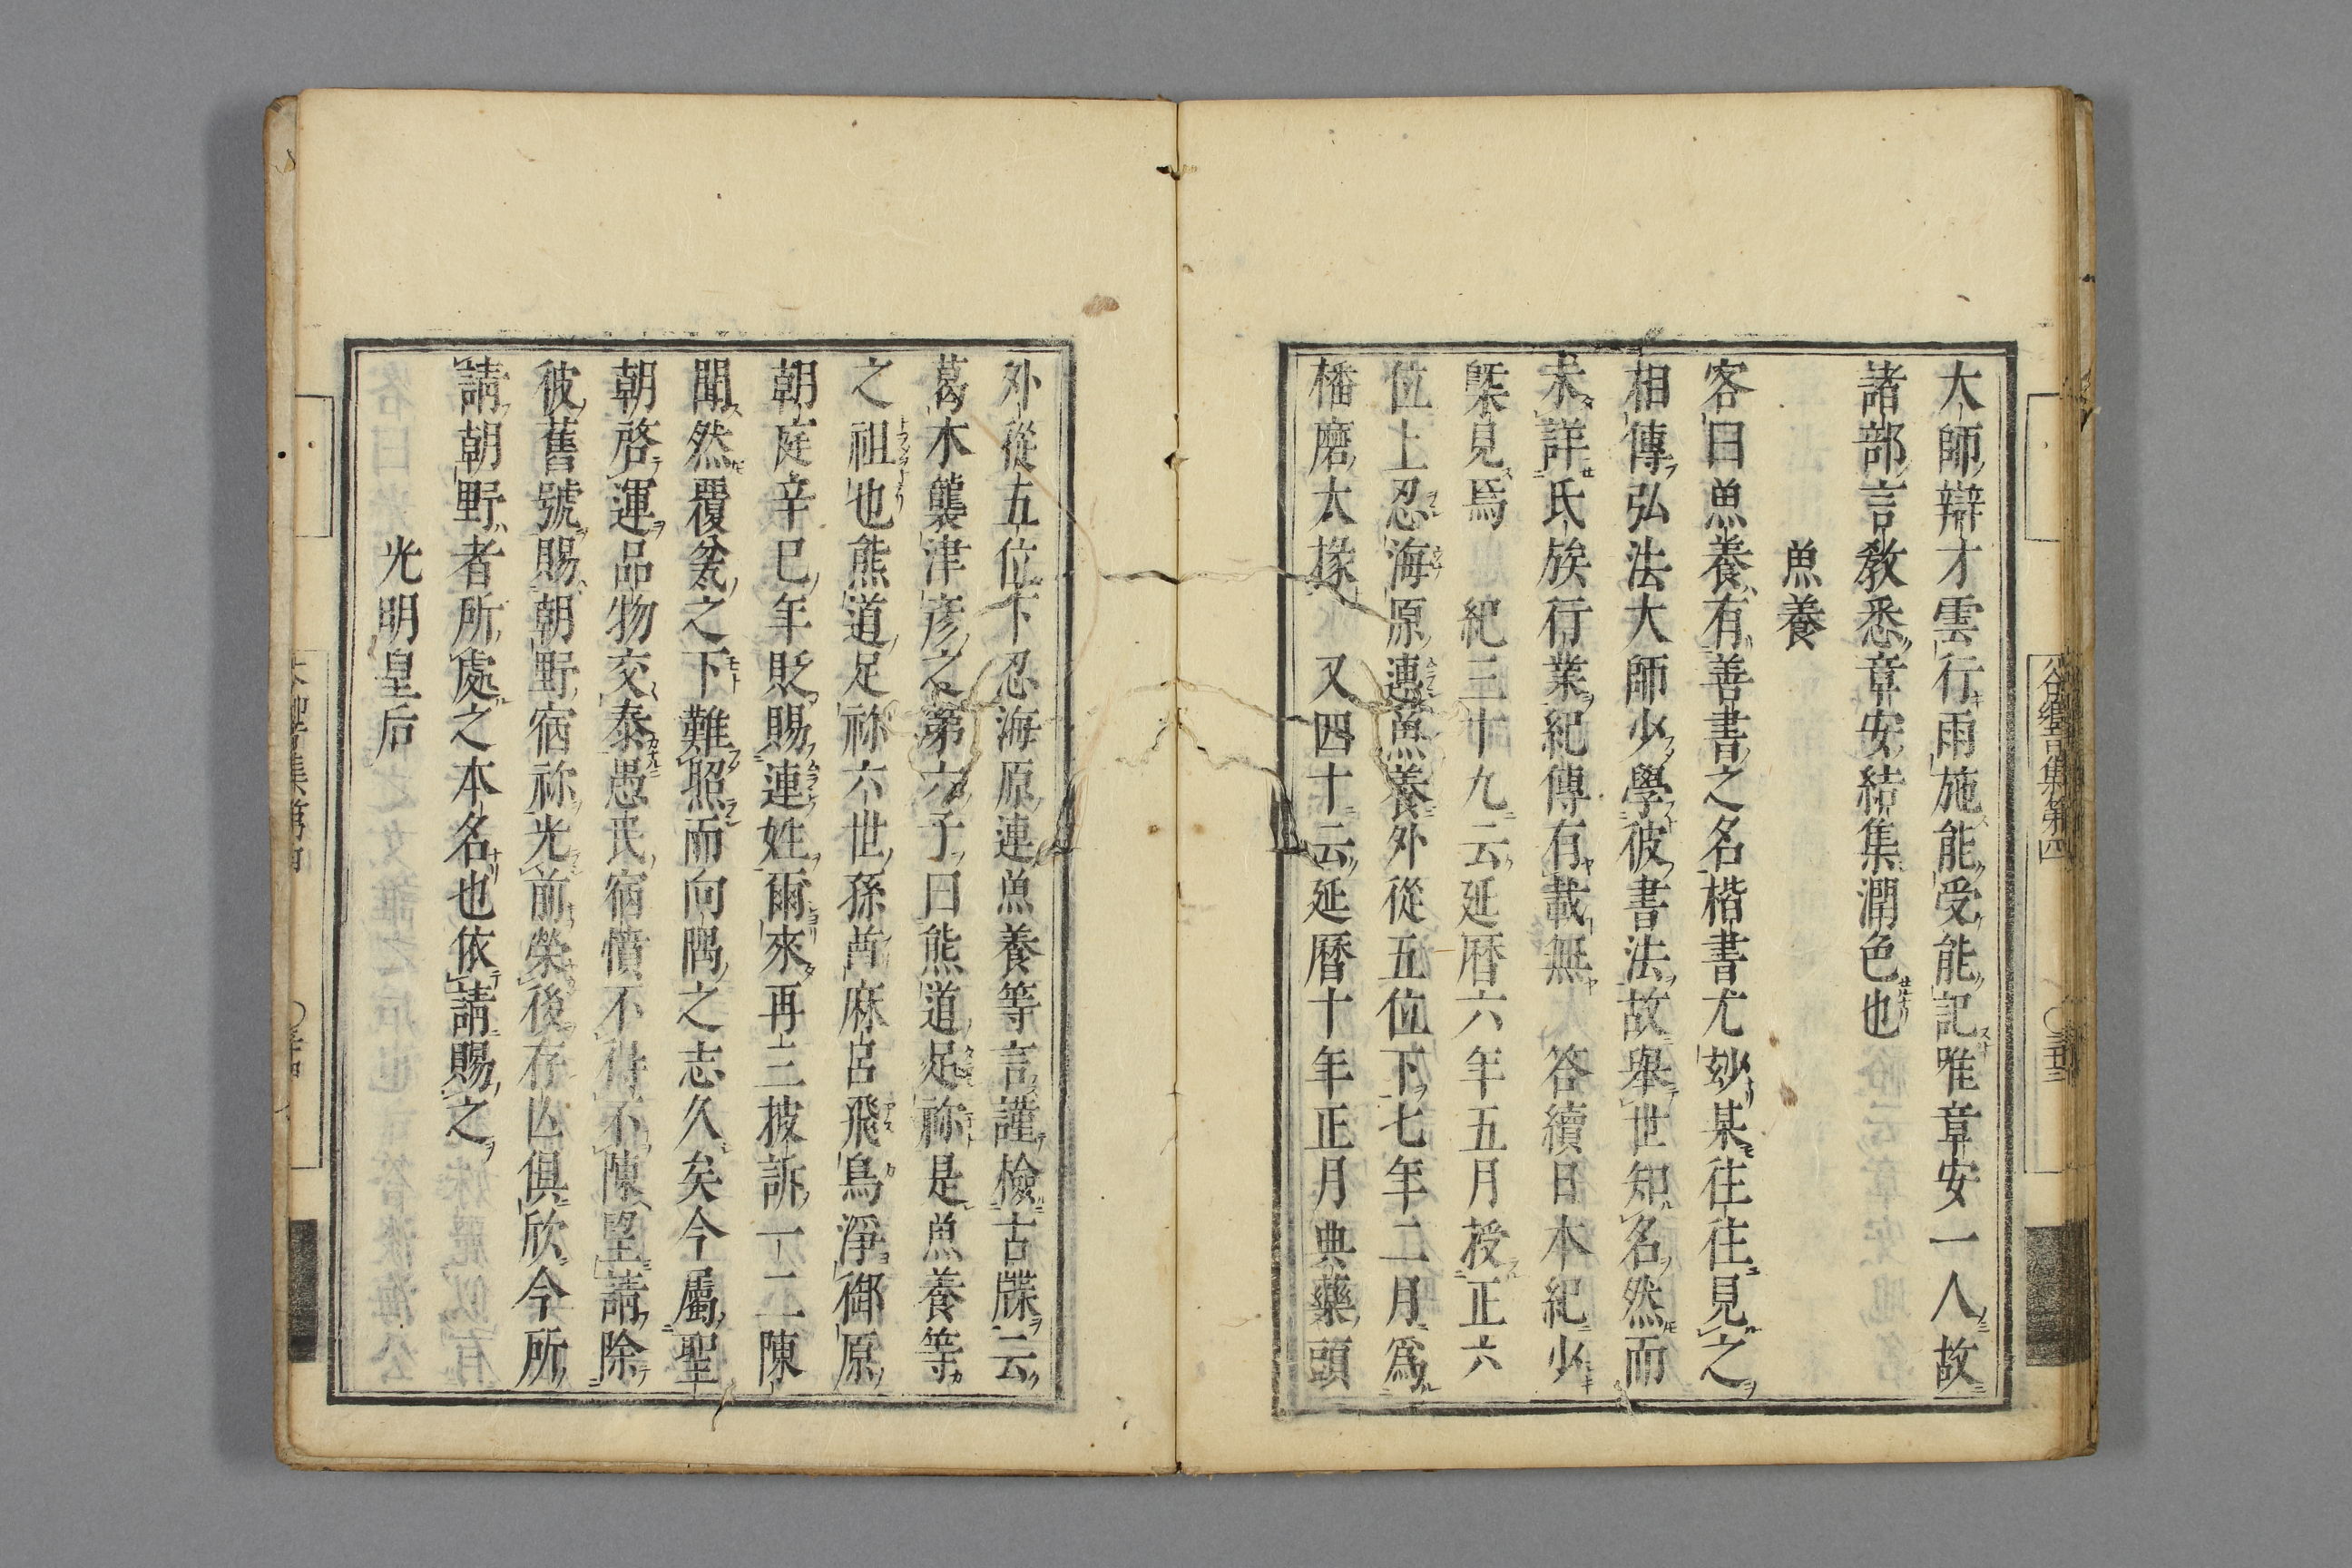 大師辯才雲行雨施能受能記唯章安一人故
諸部言教悉章安結集潤色也
魚養
客曰魚養有善書之名楷書尤妙某往往見之
相傳弘法大師少學彼書法故舉世知名然而
未詳氏族行業紀傳有載無　答續日本紀少
槩見焉　紀三十九云延暦六年五月授正六
位上忍海原連魚養外從五位下七年二月爲
播磨大掾　又四十云延暦十年正月典藥頭
外從五位下忍海原連魚養等言謹檢古牒云
葛木襲津彦之第六子曰熊道足祢是魚養等
之祖也熊道足祢六世孫首麻呂飛鳥淨御原
朝庭辛巳年貶賜連姓爾來再三披訴一二陳
聞然覆瓫之下難照而向隅之志久矣今屬聖
朝啓運品物交泰愚民宿憤不得不陳望請除
彼舊號賜朝野宿祢光前榮後存亾俱欣今所
請朝野者所處之本名也依請賜之
光明皇后